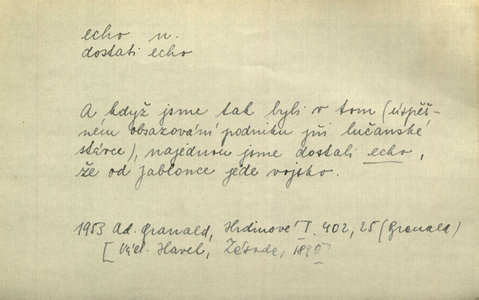 echo n.
dostati echo
A když jsme tak byli v tom (úspěš-
ném obsazování podniku při lučanské
stávce), najednou jsme dostali echo,
že od Jablonce jede vojsko.
1953 Ad. Branald, Hrdinové T. 402, 25 (Branald)
[Havel, 1890]